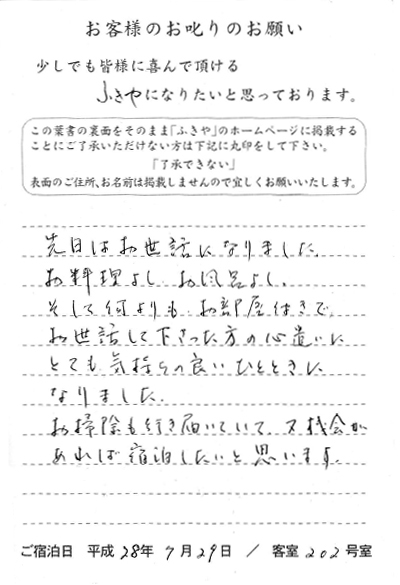 お客様のお叱りのお願い
少しでも皆様に喜んで頂ける
ふきやになりたいと思っております。
この葉書の裏面をそのまま「ふきや」のホームページに掲載する
ことにご了承いただけない方は下記に丸印をして下さい。
「了承できない」
表面のご住所、お名前は掲載しませんので宜しくお願いいたします。
先日はお世話になりました。
お料理よし、お風呂よし、
そして何よりも、お部屋付きで
お世話して下さった方の心遣いに
とても気持ちの良いひとときに
なりました。
お掃除も行き届いていて、又機会が
あれば宿泊したいと思います。
ご宿泊日 平成28年 7月29日 / 客室 202号室